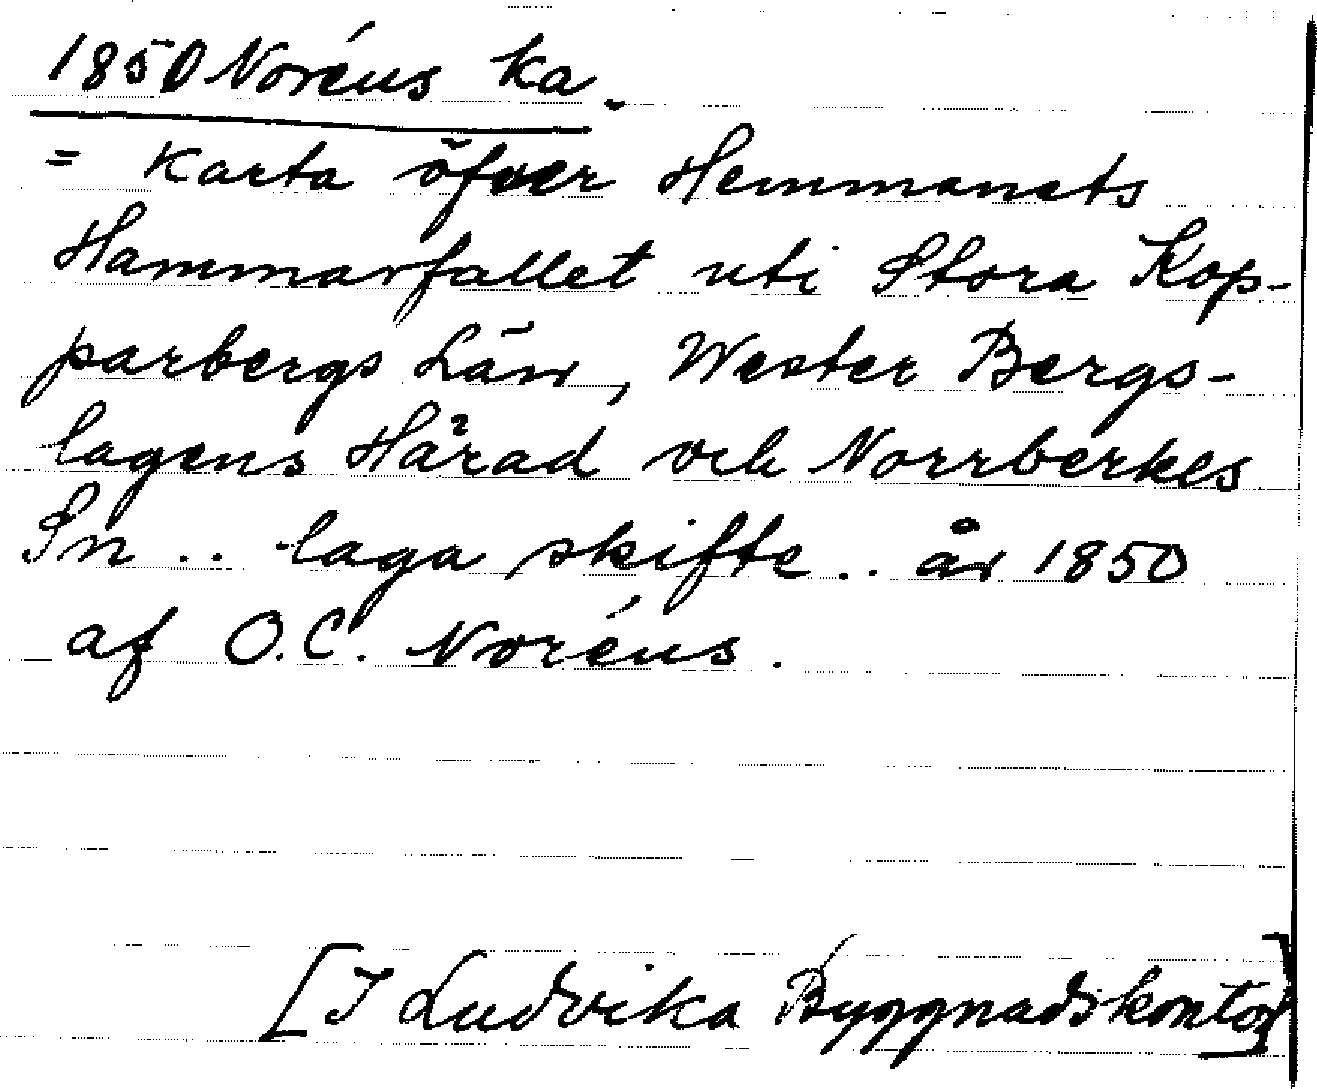 1850 Noréns ka.
= Karta öfver Hemmanets
Hammarfallet uti Stora Kop-
parbergs Län, Wester Bergs-
lagens Härad och Norrberkes
Sn .. laga skifte .. år 1850
af O.C. Noréns.
[I Ludvika Byggnadskontor]